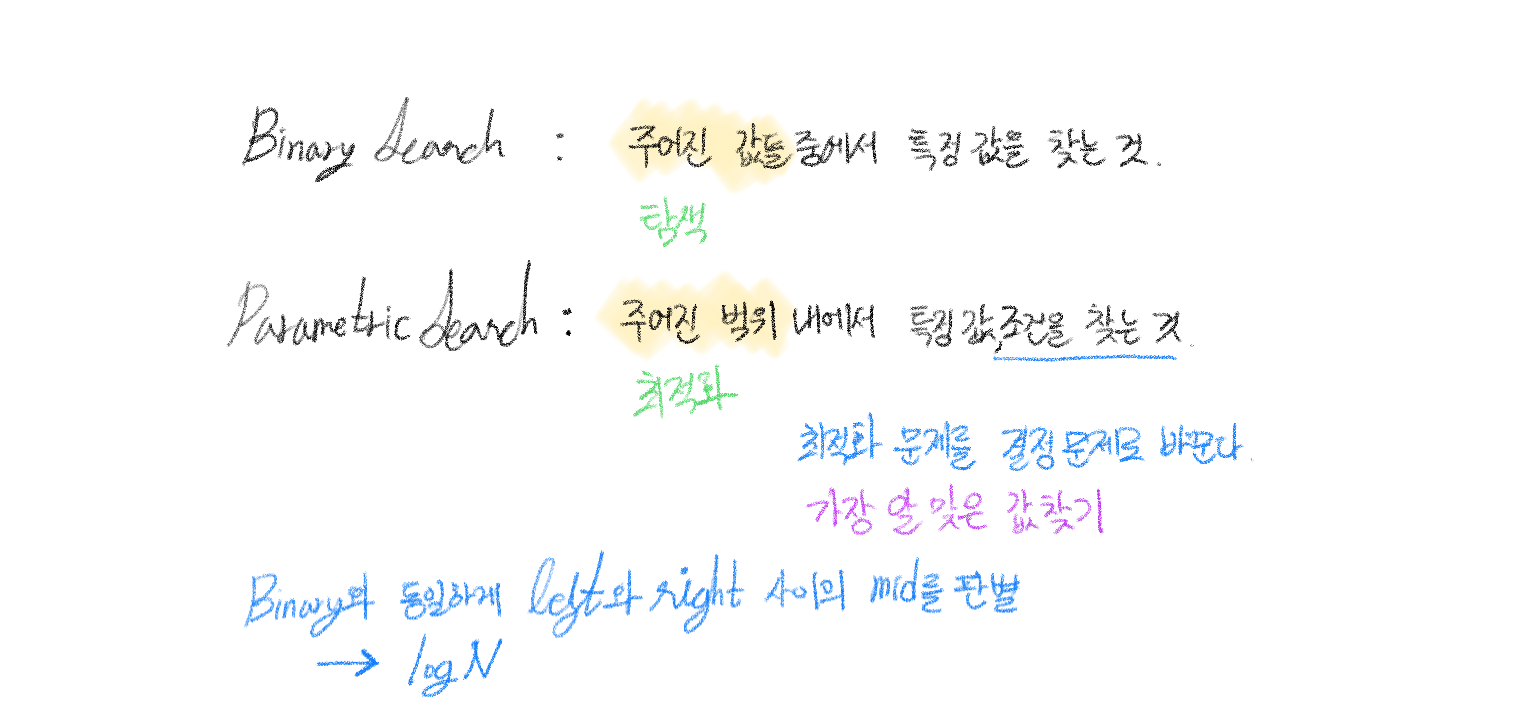 Binary Search : 주어진 값들 중에서 특정 값을 찾는 것.
탐색
Parametric Search : 주어진 범위 내에서 특정 값, 조건을 찾는 것.
최적화
최적화 문제를 결정 문제로 바꾼다.
가장 알 맞은 값 찾기
Binary와 동일하게 left와 right 사이의 mid를 판별
→ log N